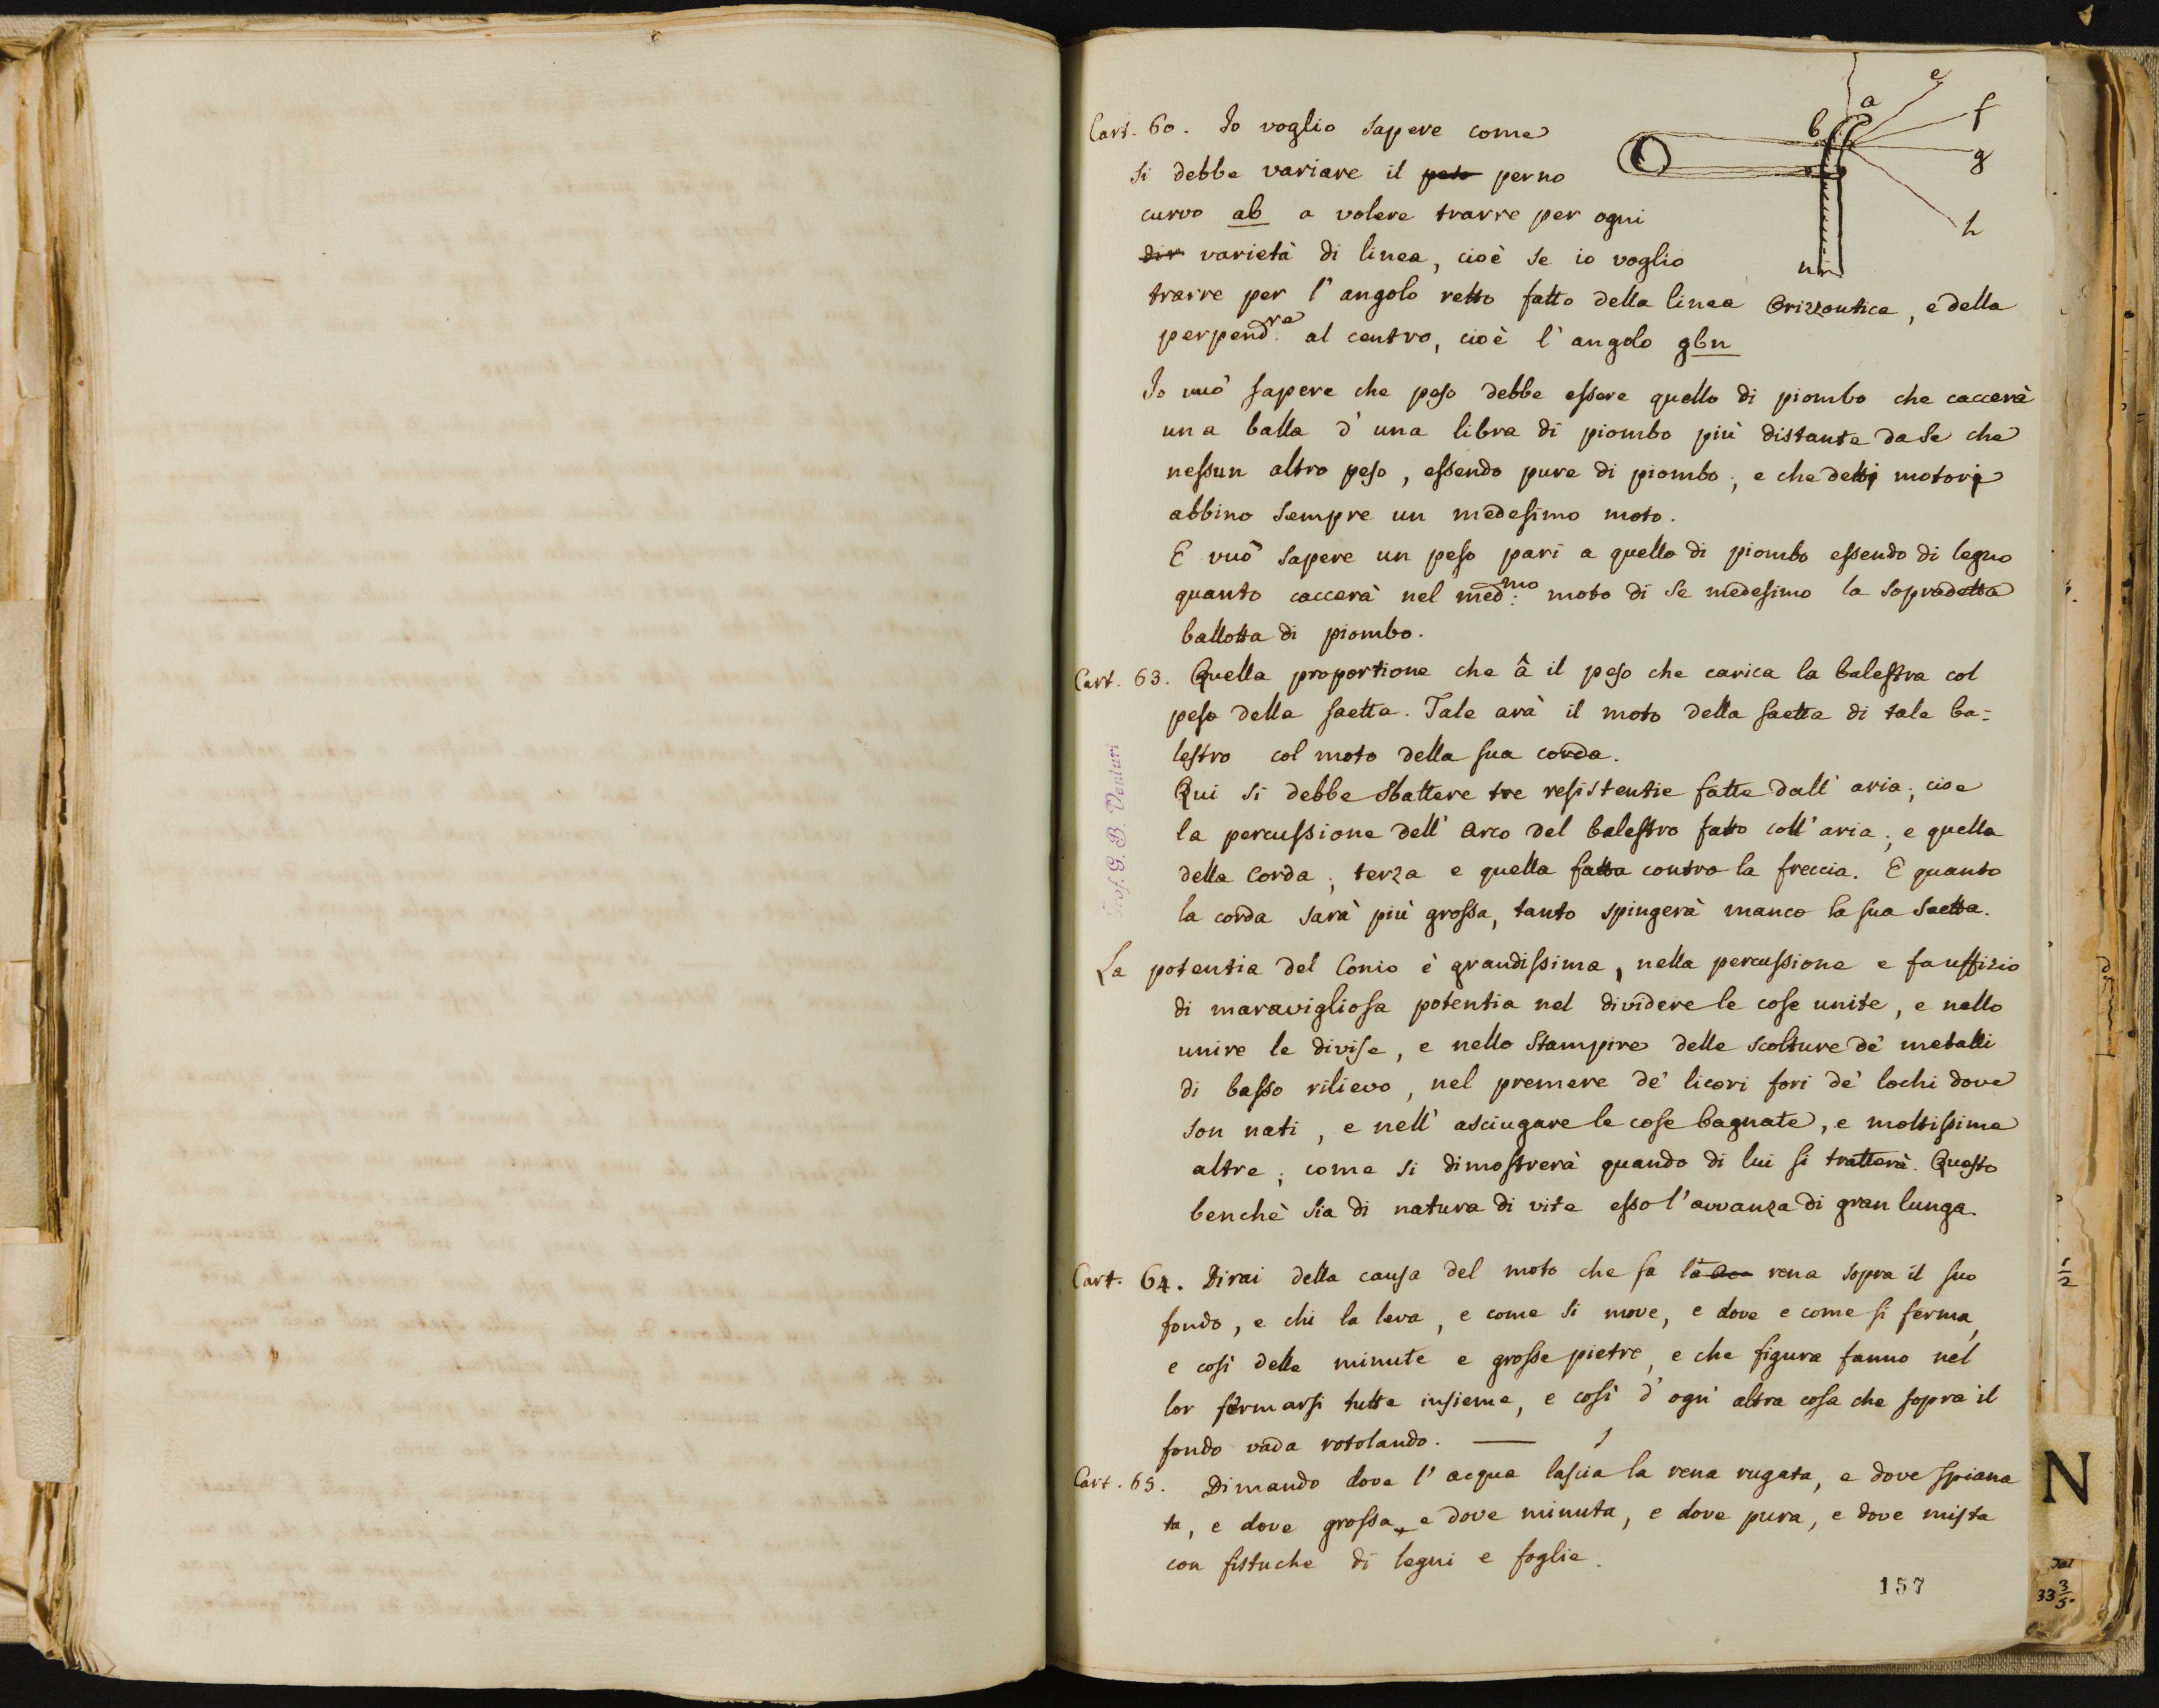 Cart. 60. Io voglio sapere come
si debbe variare il peso perno
curvo ab a volere trarre per ogni
dir varietà di linea, cioè se io voglio
trarre per l'angolo retto fatto della linea Orizzontica, e della
perpend.re al centro, cioè l'angolo gbn
a
b
e
f
g
h
n
Io vuò sapere che peso debbe essere quello di piombo che caccerà
una balla d'una libra di piombo più distante da se che
nessun altro peso, essendo pure di piombo; e che detti motori
abbino sempre un medesimo moto.
E vuò sapere un peso pari a quello di piombo essendo di legno
quanto caccerà nel med:mo moto di se medesimo la sopradetta
ballotta di piombo.
Cart. 63. Quella proportione che â il peso che carica la balestra col
peso della saetta. Tale arà il moto della saetta di tale ba=
lestro col moto della sua corda.
Qui si debbe sbattere tre resistentie fatte dall'aria; cioe
la percussione dell'Arco del balestro fatto coll'aria; e quella
della Corda; terza e quella fatta contro la freccia. E quanto
la corda sarà più grossa, tanto spingerà manco la sua saetta.
La potentia del Conio è grandissima, nella percussione e fa uffizio
di maravigliosa potentia nel dividere le cose unite, e nello
unire le divise, e nello stampire delle scolture de' metalli
di basso rilievo, nel premere de' licori fori de' lochi dove
son nati, e nell'asciugare le cose bagnate, e moltissime
altre; come si dimostrerà quando di lui si tratterà. Questo
benchè sia di natura di vite esso l'avvanza di gran lunga.
Cart. 64. Dirai della causa del moto che fa la rena sopra il suo
fondo, e chi la leva, e come si move, e dove e come si ferma,
e così delle minute e grosse pietre, e che figura fanno nel
lor fermarsi tutte insieme, e così d'ogni altra cosa che sopra il
fondo vada rotolando. —
Cart. 65. Dimando dove l'acqua lascia la rena rugata, e dove spiana
ta, e dove grossa, e dove minuta, e dove pura, e dove mista
con fistuche di legni e foglie.
157
G. B. Venturi
N
1/2
33 3/5